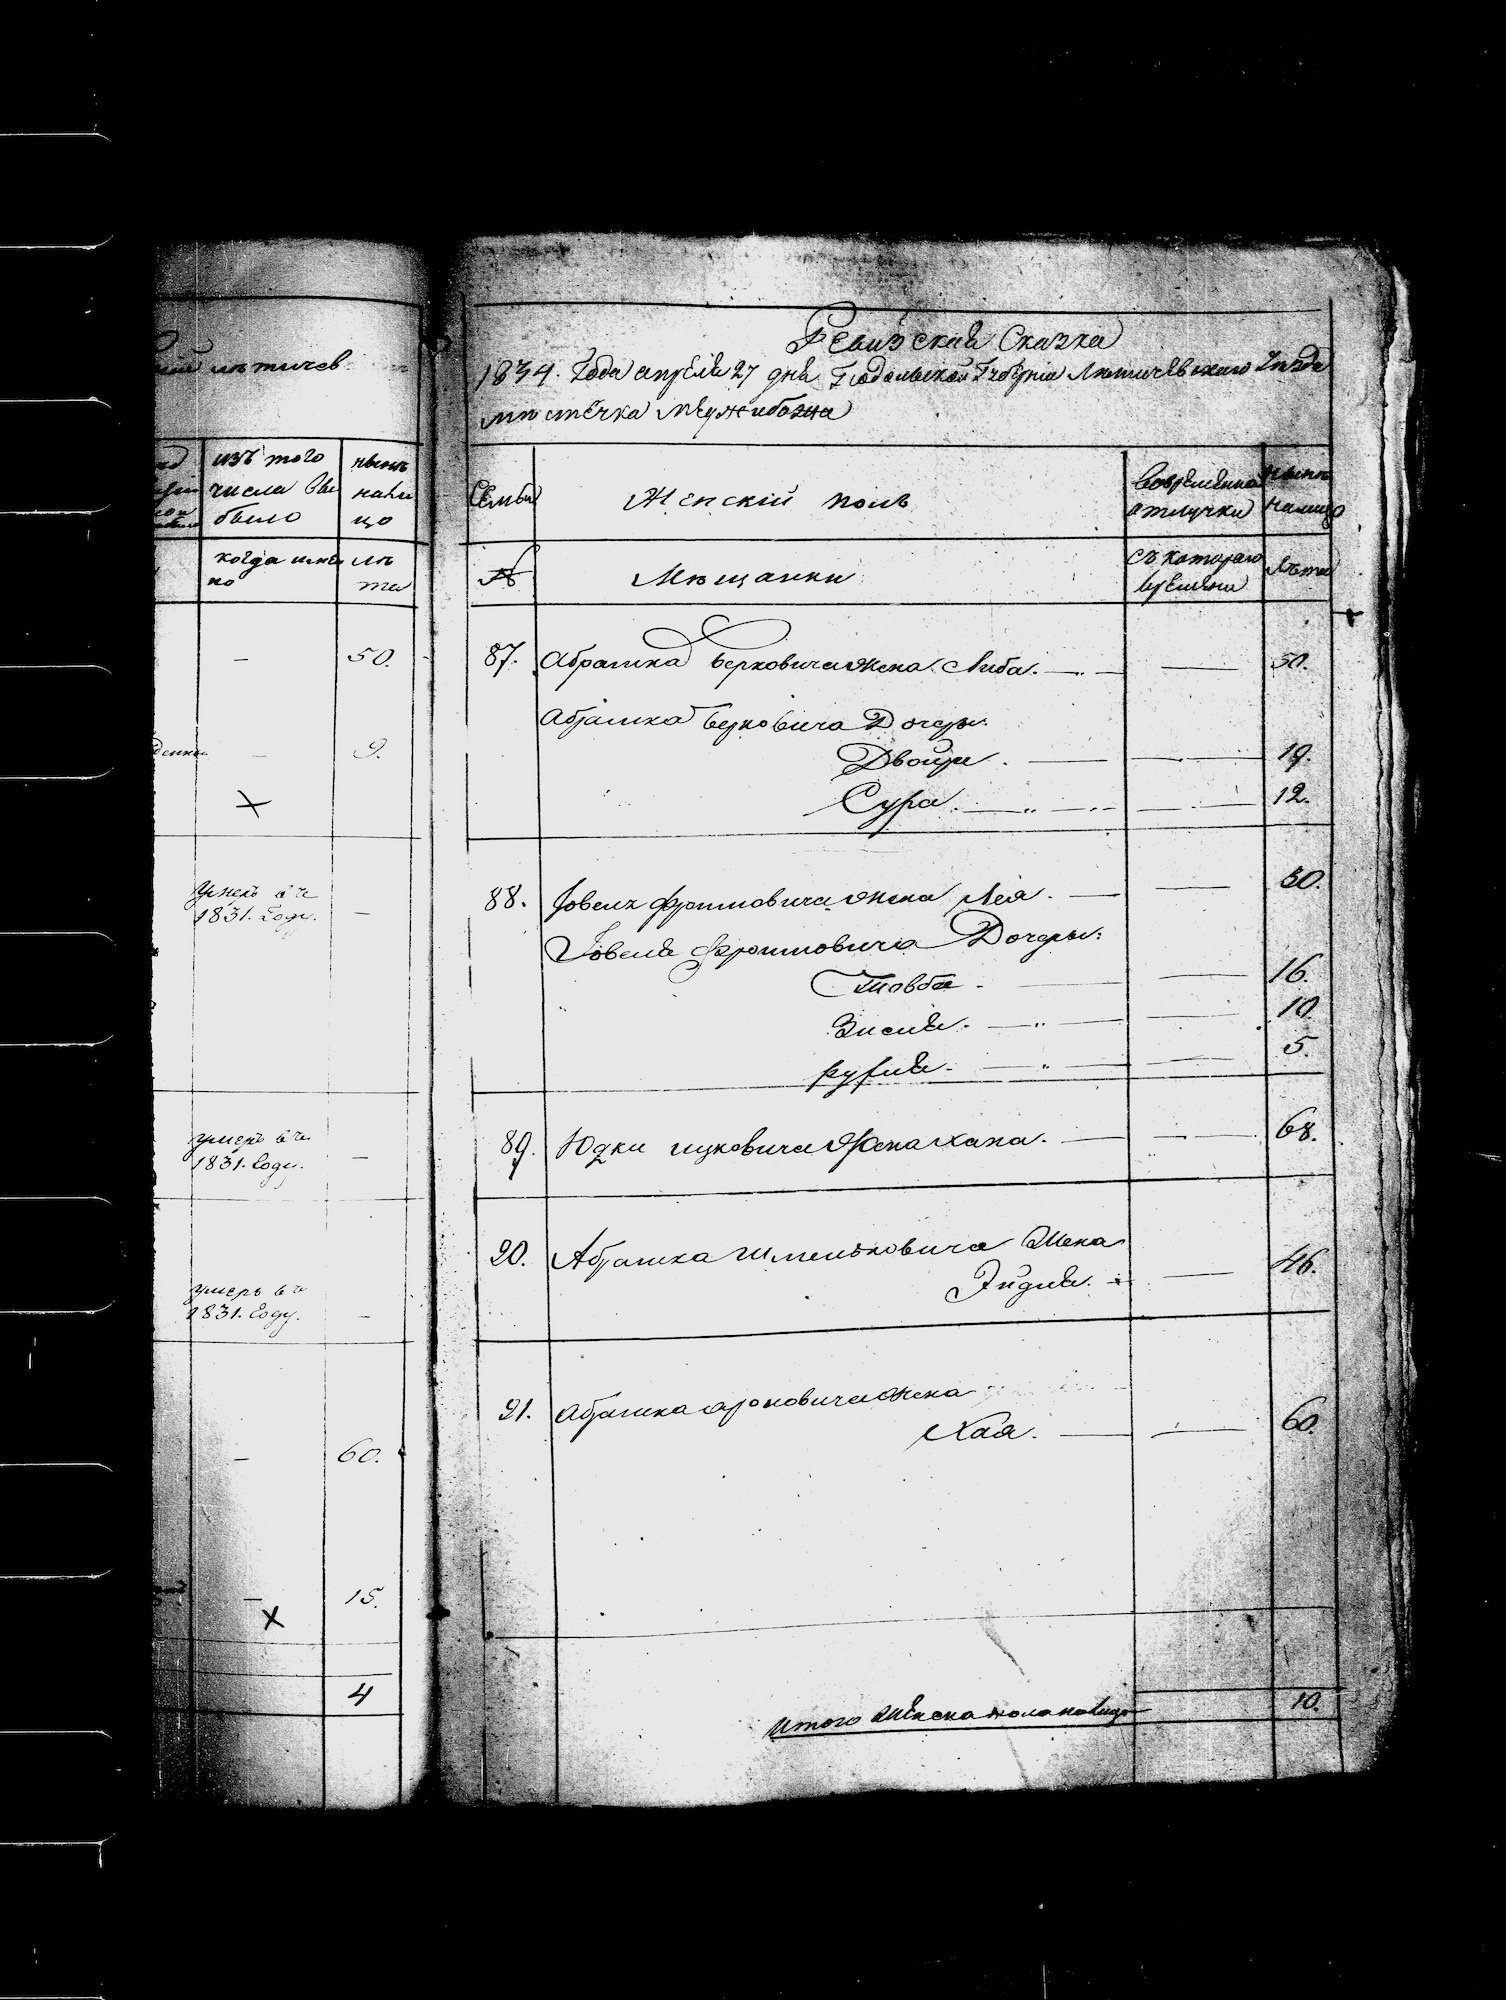 летичев
изъ того
числа вы
было
нынѣ
нали
цо
когда имен
но
лѣ
та
—
50.
—
9.
умеръ въ
1831. Году.
—
умеръ въ
1831. Году.
—
умеръ въ
1831. Году.
—
—
60.
—
15.
4
Ревизская Сказка
1834. Года апреля 27 дня Подольской Губернiи Летичевского Уезда
местечка Межибожа
Семьи
Женскiй полъ
Вовременной
отлучки
нынѣ
налицо
№
Мещанки
Съ котораго
времяни
Лѣта
87. Абрамка Берковича жена Либа. — — 50.
Абрамка Берковича Дочеры
Двойра. — — 19.
Сура. — — 12.
88. Іовеля Фроимовича жена Лея. — — 50.
Іовеля Фроимовича Дочеры:
Товба — — 16.
Зисля. — — 10.
рухля. — — 5.
89. Юдки ицковича жена хана. — — 68.
90. Абрамка Шмельковича Жена
Эйдля. — 46.
91. Абрамка ароновича жена
Хая. — — 60.
Итого женска пола налицо 10.